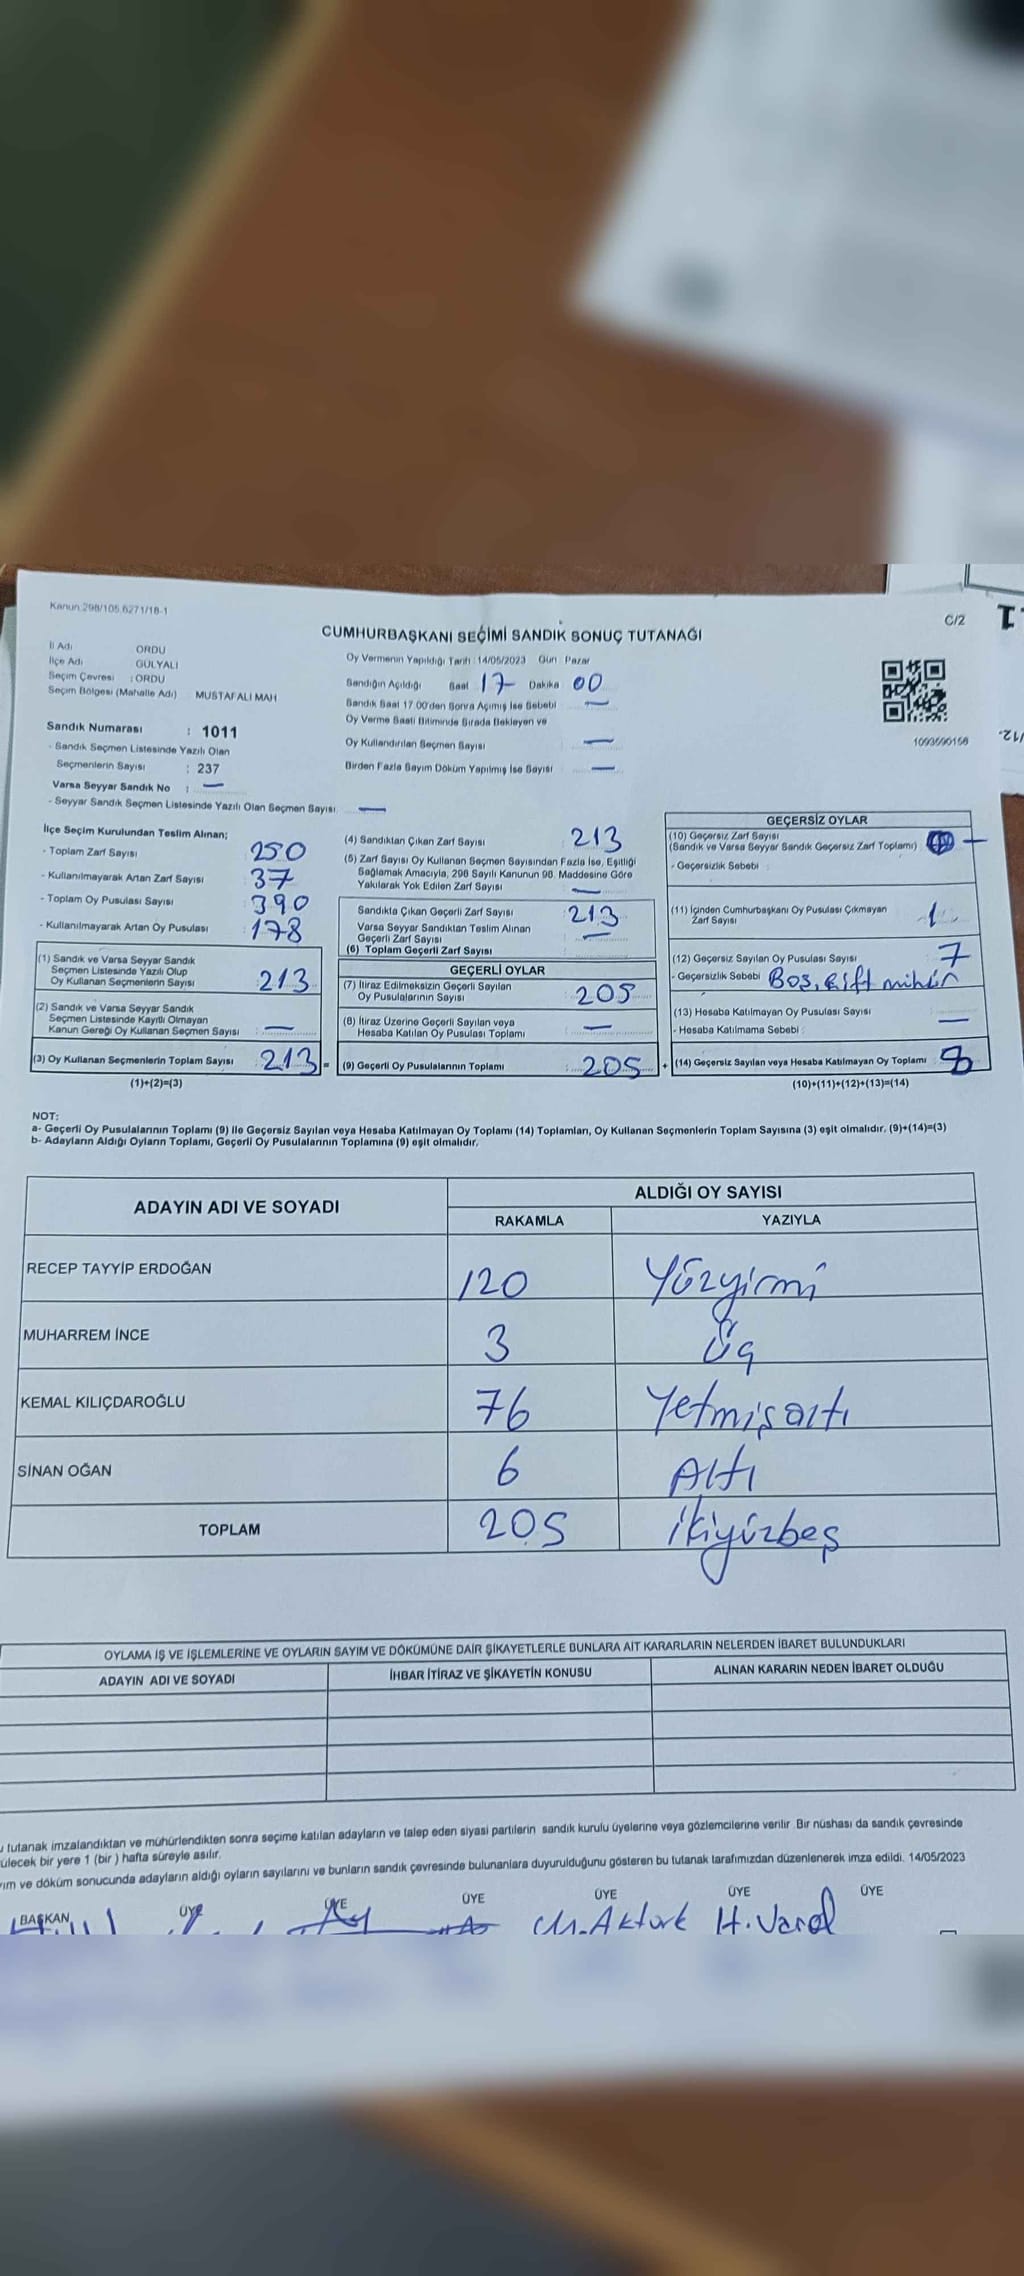 Kanun:298/105,6271/18-1
C/2
CUMHURBAŞKANI SEÇİMİ SANDIK SONUÇ TUTANAĞI
İl Adı ORDU
İlçe Adı GÜLYALI
Seçim Çevresi : ORDU
Seçim Bölgesi (Mahalle Adı) MUSTAFALI MAH
Oy Vermenin Yapıldığı Tarih : 14/05/2023 Gün : Pazar
Sandığın Açıldığı Saat 17 Dakika 00
Sandık Saat 17.00'den Sonra Açımış İse Sebebi —
Oy Verme Saati Bitiminde Sırada Bekleyen ve
Oy Kullandırılan Seçmen Sayısı —
Birden Fazla Sayım Döküm Yapılmış İse Sayısı —
1093590156
Sandık Numarası : 1011
- Sandık Seçmen Listesinde Yazılı Olan
Seçmenlerin Sayısı : 237
Varsa Seyyar Sandık No : —
- Seyyar Sandık Seçmen Listesinde Yazılı Olan Seçmen Sayısı —
İlçe Seçim Kurulundan Teslim Alınan;
- Toplam Zarf Sayısı 250
- Kullanılmayarak Artan Zarf Sayısı 37
- Toplam Oy Pusulası Sayısı 390
- Kullanılmayarak Artan Oy Pusulası 178
(1) Sandık ve Varsa Seyyar Sandık
Seçmen Listesinde Yazılı Olup
Oy Kullanan Seçmenlerin Sayısı 213
(2) Sandık ve Varsa Seyyar Sandık
Seçmen Listesinde Kayıtlı Olmayan
Kanun Gereği Oy Kullanan Seçmen Sayısı —
(3) Oy Kullanan Seçmenlerin Toplam Sayısı 213 =
(1)+(2)=(3)
(4) Sandıktan Çıkan Zarf Sayısı 213
(5) Zarf Sayısı Oy Kullanan Seçmen Sayısından Fazla İse, Eşitliği
Sağlamak Amacıyla, 298 Sayılı Kanunun 98. Maddesine Göre
Yakılarak Yok Edilen Zarf Sayısı —
Sandıkta Çıkan Geçerli Zarf Sayısı 213
Varsa Seyyar Sandıktan Teslim Alınan
Geçerli Zarf Sayısı —
(6) Toplam Geçerli Zarf Sayısı
GEÇERLİ OYLAR
(7) İtiraz Edilmeksizin Geçerli Sayılan
Oy Pusulalarının Sayısı 205
(8) İtiraz Üzerine Geçerli Sayılan veya
Hesaba Katılan Oy Pusulası Toplamı —
(9) Geçerli Oy Pusulalarının Toplamı 205 +
GEÇERSİZ OYLAR
(10) Geçersiz Zarf Sayısı
(Sandık ve Varsa Seyyar Sandık Geçersiz Zarf Toplamı) —
- Geçersizlik Sebebi
(11) İçinden Cumhurbaşkanı Oy Pusulası Çıkmayan
Zarf Sayısı 1
(12) Geçersiz Sayılan Oy Pusulası Sayısı 7
- Geçersizlik Sebebi Boş, çift mühür
(13) Hesaba Katılmayan Oy Pusulası Sayısı —
- Hesaba Katılmama Sebebi
(14) Geçersiz Sayılan veya Hesaba Katılmayan Oy Toplamı 8
(10)+(11)+(12)+(13)=(14)
NOT:
a- Geçerli Oy Pusulalarının Toplamı (9) ile Geçersiz Sayılan veya Hesaba Katılmayan Oy Toplamı (14) Toplamları, Oy Kullanan Seçmenlerin Toplam Sayısına (3) eşit olmalıdır. (9)+(14)=(3)
b- Adayların Aldığı Oyların Toplamı, Geçerli Oy Pusulalarının Toplamına (9) eşit olmalıdır.
ADAYIN ADI VE SOYADI ALDIĞI OY SAYISI
RAKAMLA YAZIYLA
RECEP TAYYİP ERDOĞAN 120 Yüzyirmi
MUHARREM İNCE 3 Üç
KEMAL KILIÇDAROĞLU 76 Yetmişaltı
SİNAN OĞAN 6 Altı
TOPLAM 205 İkiyüzbeş
OYLAMA İŞ VE İŞLEMLERİNE VE OYLARIN SAYIM VE DÖKÜMÜNE DAİR ŞİKAYETLERLE BUNLARA AİT KARARLARIN NELERDEN İBARET BULUNDUKLARI
ADAYIN ADI VE SOYADI İHBAR İTİRAZ VE ŞİKAYETİN KONUSU ALINAN KARARIN NEDEN İBARET OLDUĞU
u tutanak imzalandıktan ve mühürlendikten sonra seçime katılan adayların ve talep eden siyasi partilerin sandık kurulu üyelerine veya gözlemcilerine verilir. Bir nüshası da sandık çevresinde
ülecek bir yere 1 (bir) hafta süreyle asılır.
yım ve döküm sonucunda adayların aldığı oyların sayılarını ve bunların sandık çevresinde bulunanlara duyurulduğunu gösteren bu tutanak tarafımızdan düzenlenerek imza edildi. 14/05/2023
BAŞKAN ÜYE ÜYE ÜYE ÜYE ÜYE ÜYE
M. Aktürk H. Varol